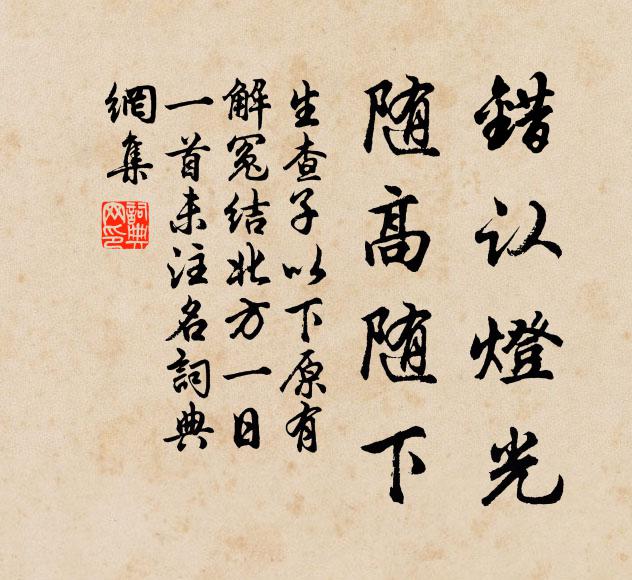 错认燈光
随高随下
生查子以下原有
解冤结北方一日
一首未注名詞典
網集
詞典
网印